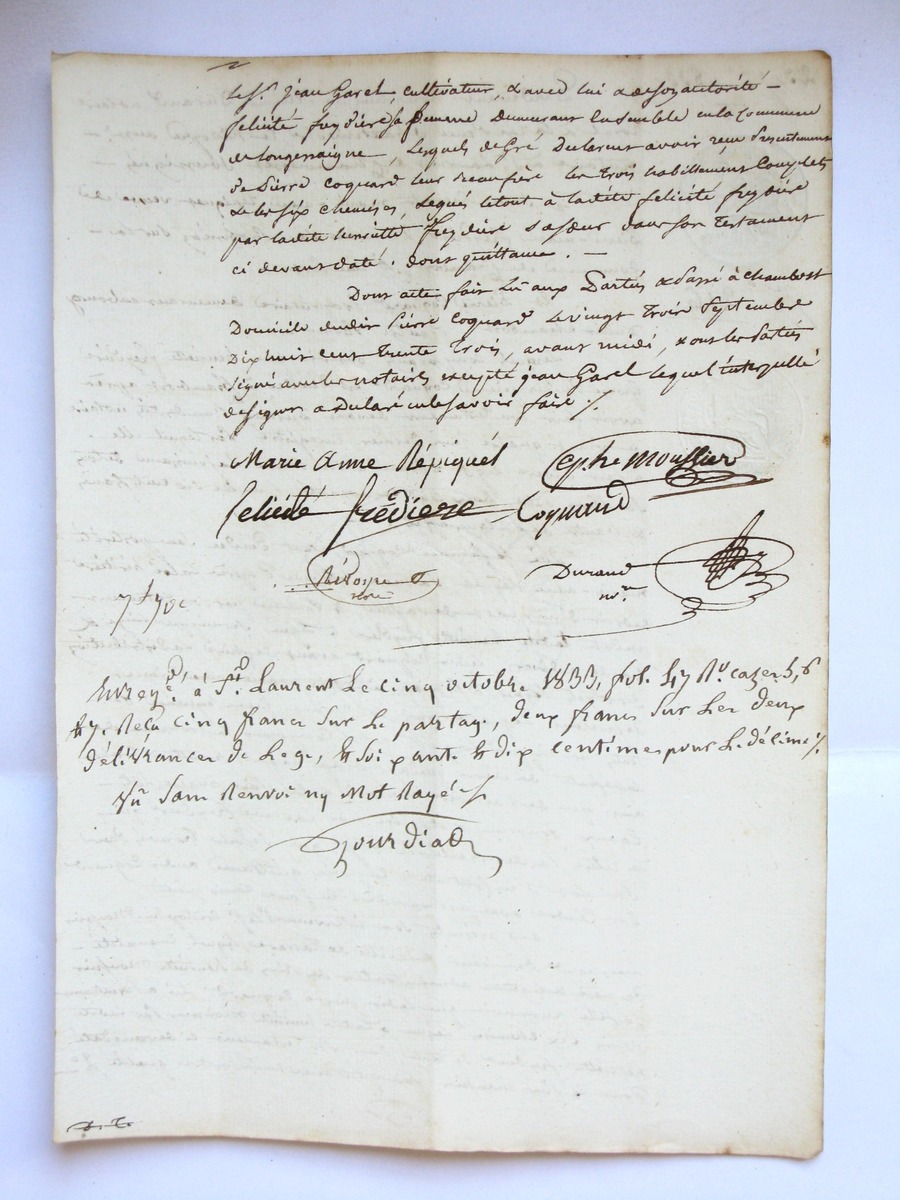 Le Sr. jean Garel cultivateur, & avec lui & de son autorité
félicité freydière sa femme demeurant ensemble en la commune
de longessaigne, Lesquels de Gré declarent avoir reçu Présentement
de Pierre Coquard leur beaufrère les trois habillement Complets
& les six chemises, Légués le tout à ladite félicité freydière
par ladite freydière sa sœur dans son testament
ci devant daté. dont quittance.
Dont acte fait Lu aux Parties & Passé à Chambost
Domicile dudit Pierre Coquard Le vingt trois Septembre
Dix huit cent trente trois, avant midi, & ont les Parties
signé avec les notaires excepté jean Garel lequel interpellé
de signer a declaré ne le savoir faire ./.
Marie Anne Répiquét
Moullier
felicité fredière Coquard
Durand
nore.
Enregé. à St. Laurent Le cinq octobre 1833, fol. 47 Ro. cazes 5, 6
& 7. Reçu cinq francs sur Le partage, deux francs sur Les deux
délivrances de Legs, & soixante & dix centimes pour Le décime ./.
Sans Renvoi ny Mot Rayé
Gourdiat